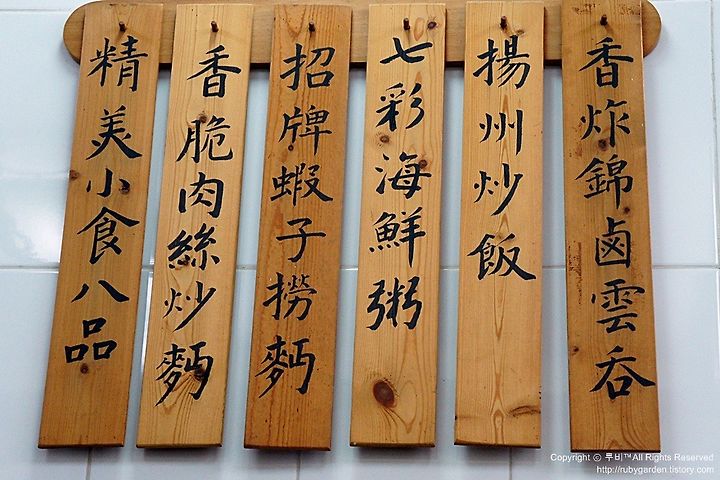 香炸錦鹵雲吞
揚州炒飯
七彩海鮮粥
招牌蝦子撈麪
香脆肉絲炒麪
精美小食八品
Copyright ⓒ 루비™All Rights Reserved
http://rubygarden.tistory.com